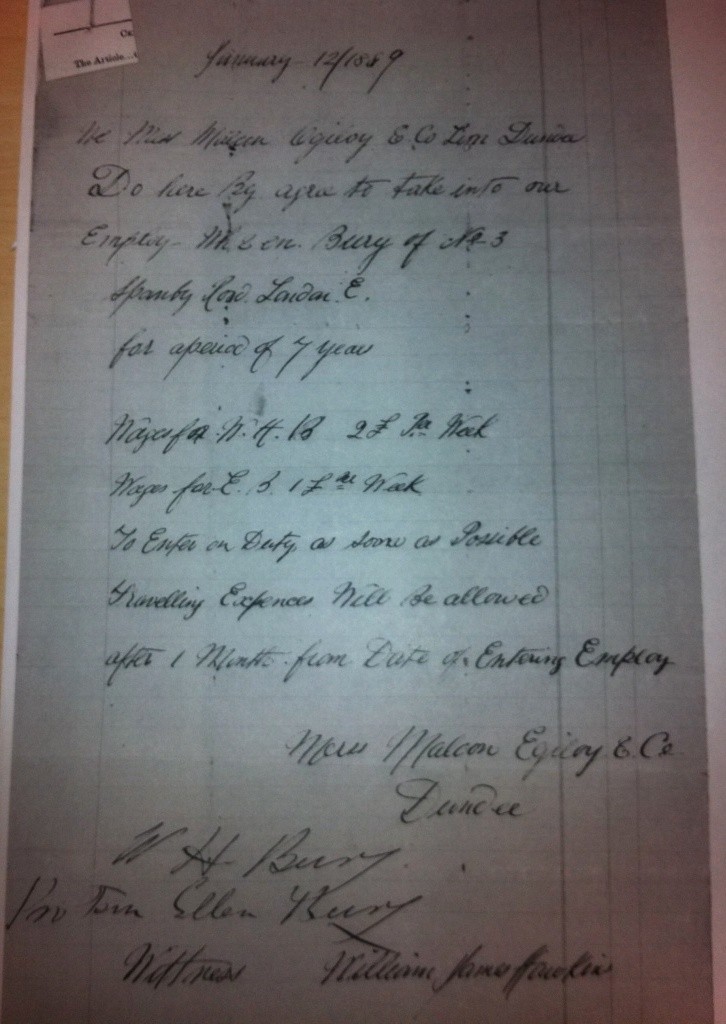 The Article...
January 12/1889
We Mess Malcon Ogilvy & Co Lim Dundee
Do here By agree to take into our
Employ - Bury of No 3
Spanby Road London E.
for a period of 7 year
Wages for W. H. B 2£ Per Week
Wages for E. B. 1£ per Week
To Enter on Duty as soone as Possible
Travelling Expences Will Be allowed
after 1 Month from Date of Entering Employ
Mess Malcon Egilvy & Co
Dundee
W H Bury
Pro Tem Ellen Bury
Wittness William James Hawkins